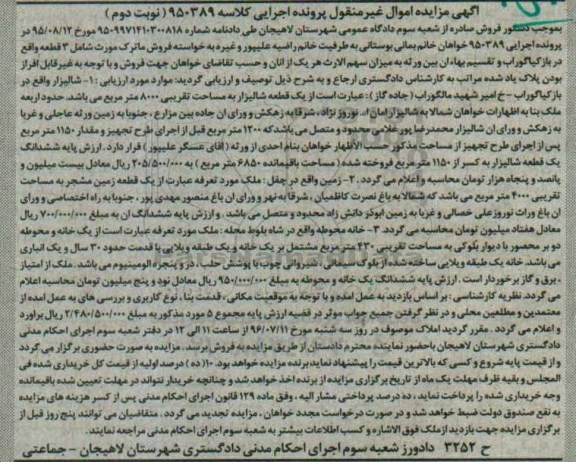 آگهی مزایده اموال غیرمنقول پرونده اجرایی کلاسه ۹۵۰۳۸۹ ( نوبت دوم )
بموجب دستور فروش صادره از شعبه سوم دادگاه عمومی شهرستان لاهیجان طی دادنامه شماره ۹۵۰۹۹۷۱۴۱۰۳۰۰۸۱۸ مورخ ۹۵/۰۸/۱۲ در
پرونده اجرایی ۹۵۰۳۸۹ خواهان خانم بمانی بوستانی به طرفیت خانم راضیه علیپور و غیره به خواسته فروش ماترک مورث شامل ۳ قطعه واقع
در بازکیاگوراب و تقسیم بهاء آن بین ورثه به میزان سهم الارث هر یک از آنان و حسب تقاضای خواهان جهت فروش و با توجه به غیر قابل افراز
بودن پلاک یاد شده مراتب به کارشناس دادگستری ارجاع و به شرح ذیل توصیف و ارزیابی گردید: موارد مورد ارزیابی : ۱- شالیزار واقع در
بازکیاگوراب - خ امیر شهید مالگوراب (جاده گاز): عبارت است از یک قطعه شالیزار به مساحت تقریبی ۸۰۰۰ متر مربع می باشد. حدود اربعه
ملک بنا به اظهارات خواهان شمالا به شالیزار امان اله نوروز نژاد ، شرقا به زهکش و ورای آن جاده بین مزارع ، جنوبا به زمین ورثه عاجلی و غربا
به زهکش و ورای آن شالیزار محمدرضا پور غلامی محدود و متصل می باشد که ۱۲۰۰ متر مربع قبل از اجرای طرح تجهیز و مقدار ۱۱۵۰ متر مربع
پس از اجرای طرح تجهیز از مساحت مذکور حسب الاظهار خواهان بنام احدی از ورثه (آقای عسگر علیپور) قرار دارد . ارزش پایه ششدانگ
یک قطعه شالیزار به کسر از ۱۱۵۰ متر مربع فروخته شده (مساحت باقیمانده ۶۸۵۰ متر مربع ) به ۲۰۵/۵۰۰/۰۰۰ ریال معادل بیست میلیون و
پانصد و پنجاه هزار تومان محاسبه و اعلام می گردد . ۲ - زمین واقع در چفل : ملک مورد تعرفه عبارت از یک قطعه زمین مشجر به مساحت
تقریبی ۴۰۰۰ متر مربع می باشد که شمالا به باغ نصرت کاظمیان ، شرقا به نهر و ورای آن باغ منصور مهدی پور ، جنوبا به راه اختصاصی و ورای
آن باغ وراث نوروز علی خصالی و غربا به زمین ابوکز دانش زاد محدود و متصل می باشد . و ارزش پایه ششدانگ آن به مبلغ ۷۰۰/۰۰۰/۰۰۰ ریال
معادل هفتاد میلیون تومان محاسبه می گردد. ۳- خانه محوطه واقع در شاه بلوط محله : ملک مورد تعرفه عبارت است از یک خانه و محوطه
دو بر محصور با دیوار بلوکی به مساحت تقریبی ۴۳۰ متر مربع مشتمل بر یک خانه و یک طبقه ویلایی با قدمت حدود ۳۰ سال و یک انباری
می باشد. خانه یک طبقه ویلایی ساخته شده از بلوک سیمانی ، شیروانی چوب با پوشش حلب ، در و پنجره آلومینیوم می باشد. ملک از امتیاز
، برق و گاز برخوردار است . ارزش پایه ششدانگ یک خانه و محوطه به مبلغ ۹۵۰/۰۰۰/۰۰۰ ریال معادل نود و پنج میلیون تومان محاسبه اعلام
می گردد. نظریه کارشناسی : بر اساس بازدید به عمل آمده و با توجه به موقعیت مکانی ، قدمت بنا ، نوع کاربری و بررسی های به عمل آمده از
معتمدین و مطلعین محلی و در نظر گرفتن جمیع جوانب موثر در قضیه ارزش پایه مجموع ۵ مورد مذکور به مبلغ ۲/۴۸۰/۵۰۰/۰۰۰ ریال برآورد
و اعلام می گردد . مقرر گردید املاک موصوف در روز سه شنبه مورخ ۹۶/۰۷/۱۱ از ساعت ۱۱ الی ۱۲ در دفتر شعبه سوم اجرای احکام مدنی
دادگستری شهرستان لاهیجان با حضور نماینده محترم دادستان از طریق مزایده به فروش برسد . مزایده به صورت حضوری برگزار می گردد
و از قیمت پایه شروع و کسی که بالاترین قیمت را پیشنهاد نماید برنده مزایده خواهد بود. ۱۰(ده ) درصد اولیه از قیمت کل خریداری شده فی
المجلس و بقیه ظرف مهلت یک ماه از تاریخ برگزاری مزایده از برنده اخذ خواهد شد و چنانچه خریدار نتواند در مهلت تعیین شده باقیمانده
وجه خریداری شده را پرداخت نماید، ده درصد پرداختی مشار الیه ، وفق ماده ۱۲۹ قانون اجرای احکام مدنی پس از کسر هزینه های مزایده
به نفع صندوق دولت ضبط خواهد شد و در صورت درخواست مجدد خواهان ، مزایده تجدید می گردد . متقاضیان می توانند پنج روز قبل از
برگزاری مزایده جهت بازدید از ملک فوق الاشاره و کسب اطلاعات بیشتر به شعبه سوم اجرای احکام مدنی مراجعه نمایند.
ح ۳۲۵۲ دادورز شعبه سوم اجرای احکام مدنی دادگستری شهرستان لاهیجان - جماعتی